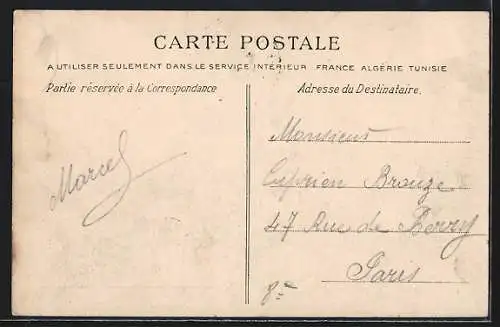 CARTE POSTALE
A UTILISER SEULEMENT DANS LE SERVICE INTÉRIEUR FRANCE ALGÉRIE TUNISIE
Partie réservée à la Correspondance
Adresse du Destinataire.
Marcel
Monsieur
Cyprien Brouze
47 Rue de Berry
Paris
8 =